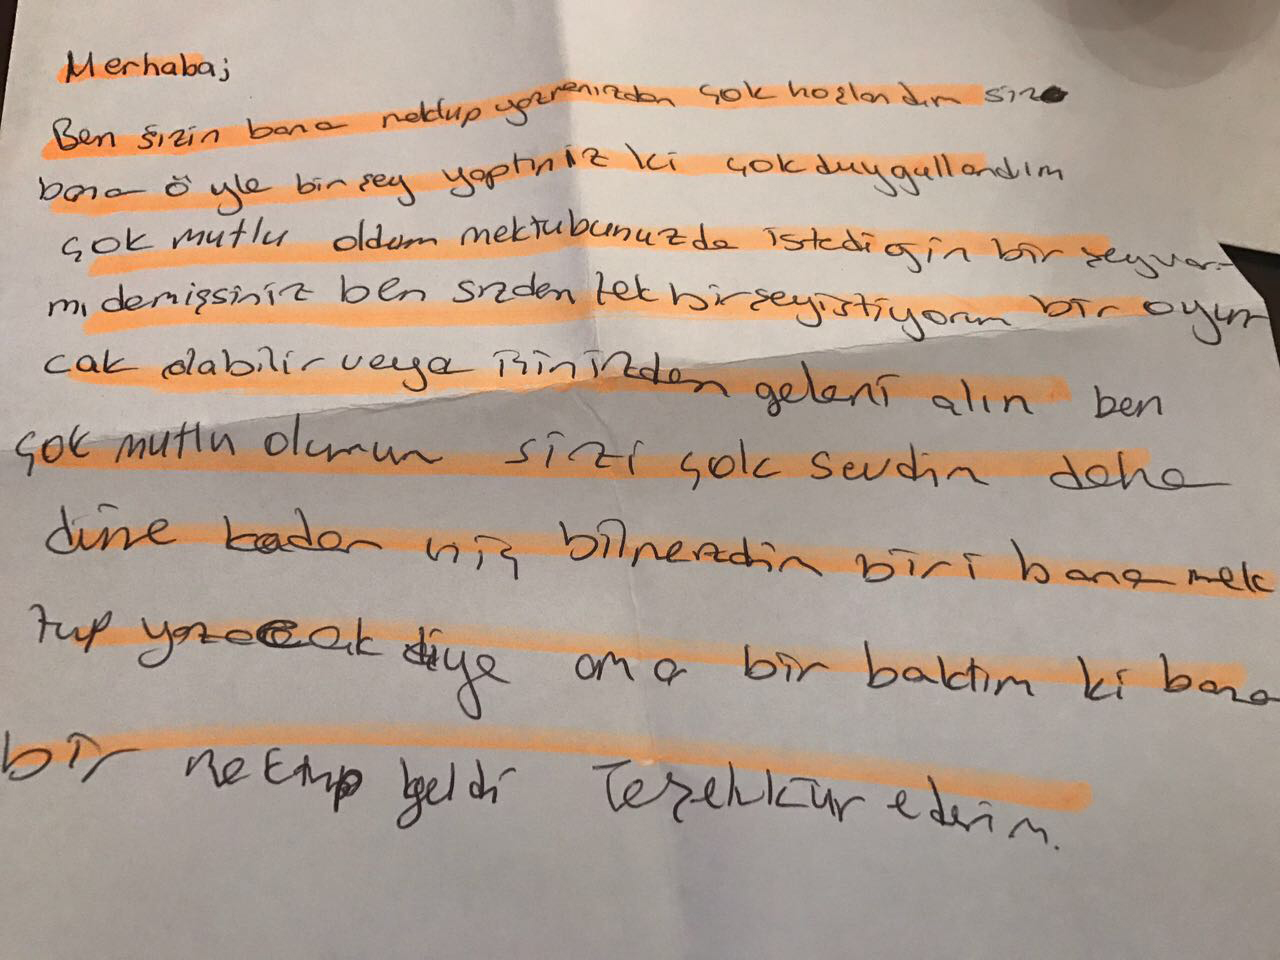 Merhaba;
Ben sizin bana mektup yazmanızdan çok hoşlandım siz
bana öyle bir şey yaptınız ki çok duygullandım
çok mutlu oldum mektubunuzda istediğin bir şey var
mı demişsiniz ben sizden tek bir şey istiyorum bir oyun
cak olabilir veya içinizden geleni alın ben
çok mutlu olurum sizi çok sevdim daha
düne kadar hiç bilmezdim biri bana mek
tup yazacak diye ama bir baktım ki bana
bir mektup geldi Teşekkür ederim.